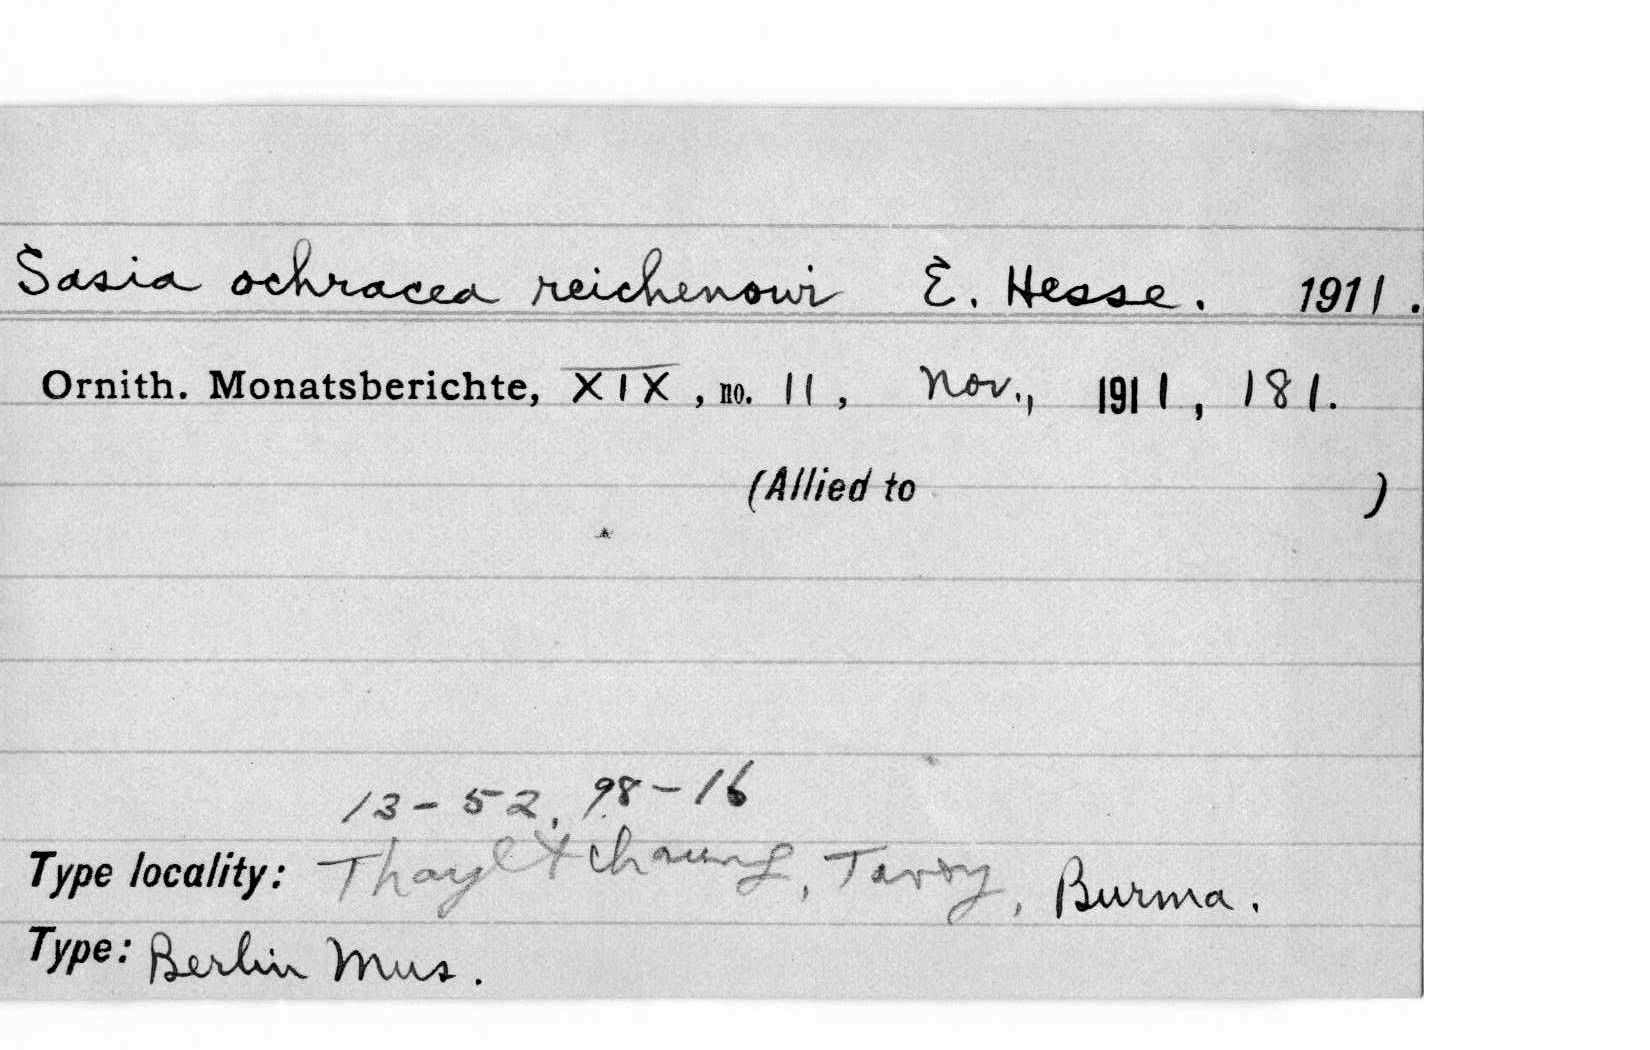 Sasia ochracea reichenowi E. Hesse. 1911.
Ornith. Monatsberichte, XIX, no. 11, Nov., 1911, 181.
(Allied to )
13-52, 98-16
Type locality: Thayetchaung, Tavoy, Burma.
Type: Berlin Mus.